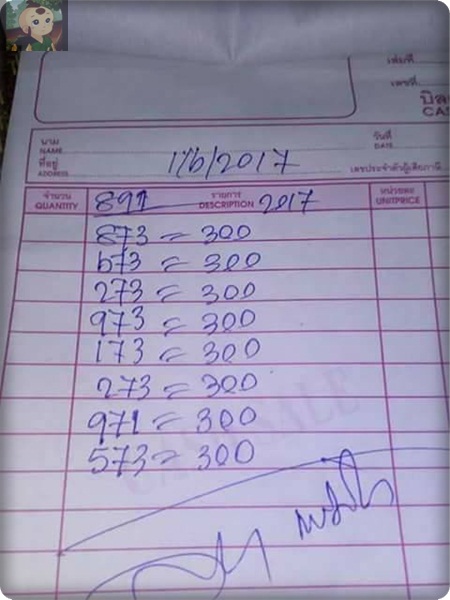 เล่มที่
เลขที่
บิล
CAS
นาม
NAME
วันที่
DATE
ที่อยู่
ADDRESS
1/6/2017
เลขประจำตัวผู้เสียภาษี
จำนวน
QUANTITY
รายการ
DESCRIPTION
หน่วยละ
UNITPRICE
891 2017
873 = 300
573 = 300
273 = 300
973 = 300
173 = 300
273 = 300
971 = 300
573 = 300
CASH SALE